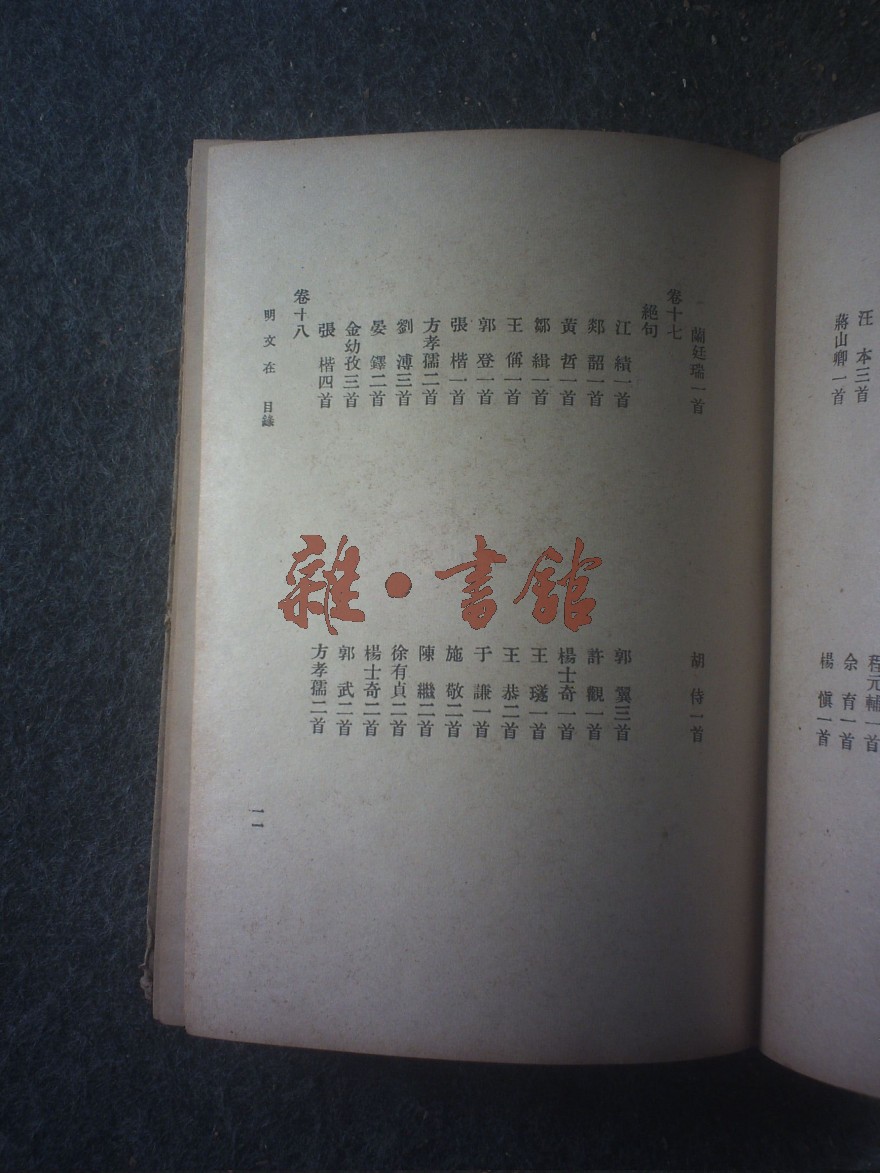 汪　本三首
蔣山卿一首
程元輔一首
余　育一首
楊　慎一首
蘭廷瑞一首
胡　侍一首
卷十七
絕句
江　績一首
郯　韶一首
黃　哲一首
鄒　緝一首
王　偁一首
郭　登一首
張　楷一首
方孝孺二首
劉　溥三首
晏　鐸二首
金幼孜三首
張　楷四首
郭　翼三首
許　觀一首
楊士奇一首
王　璲一首
王　恭二首
于　謙一首
施　敬二首
陳　繼二首
徐有貞二首
楊士奇二首
郭　武二首
方孝孺二首
卷十八
明文在　目錄
一一
雜·書館